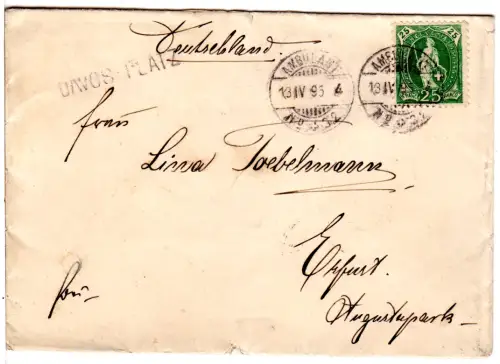 Deutschland.
DAVOS-PLATZ
AMBULANT
13 IV 95
No 52
25 25
25
Frau
Lina Toebelmann
Erfurt.
Augustapark